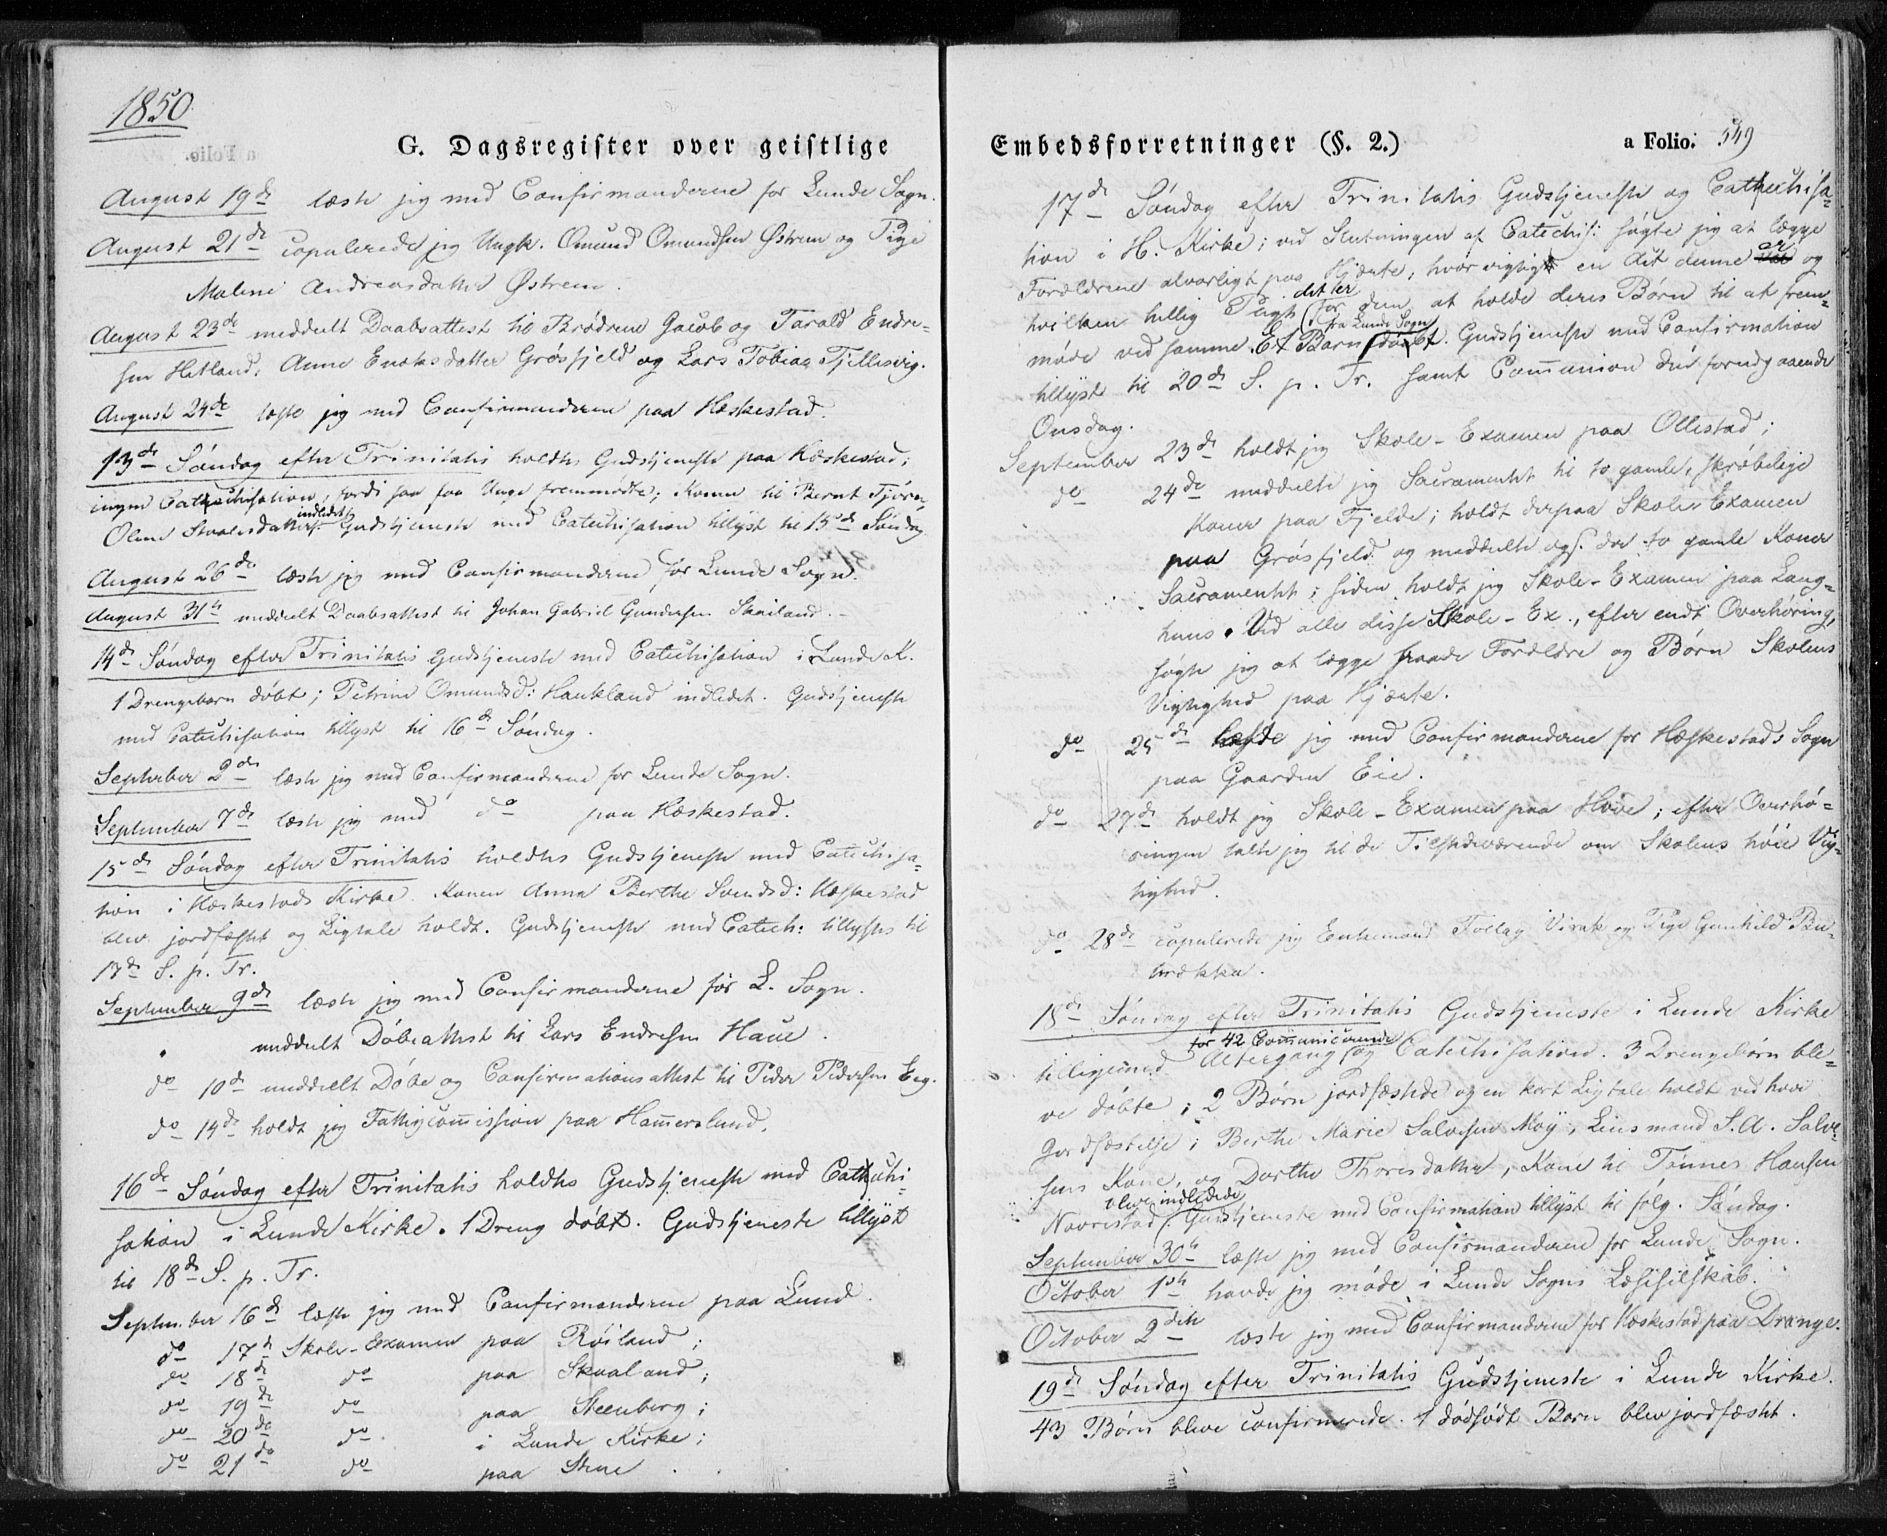 1850.
G. Dagsregister over geistlige
August 19de læste jeg med Confirmanderne for Lunde Sogn.
August 21de copulerede jeg Ungk. Omund Omundsen Østrem og Pige
Malene Andreasdatter Østrem.
August 23de meddeelt Daabsattest til Brødrene Jacob og Tarald Endre-
sen Hetland, Anne Enoksdatter Grøsfjeld og Lars Tobias Tjellesvig.
August 24de læste jeg med Confirmanderne paa Heskestad.
13de Søndag efter Trinitatis holdtes Gudstjeneste paa Heskestad;
ingen Catechisation, fordi saa faa Unge fremmødte; Konen til Bernt
Olene indledet. Gudstjeneste med Catechisation tillyst til 15de Søndag
August 26de læste jeg med Confirmanderne for Lunde Sogn.
August 31te meddeelt Daabsattest til Johan Gabriel Gundersen Skailand.
14de Søndag efter Trinitatis Gudstjeneste med Catechisation i Lunde K.
1 Drengebarn døbt; Petrine Omundsd: Haukland indledet. Gudstjeneste
med Catechisation tillyst til 16de Søndag.
September 2den læste jeg med Confirmanderne for Lunde Sogn.
September 7de læste jeg med do paa Heskestad.
15de Søndag efter Trinitatis holdtes Gudstjeneste med Catechisa-
tion i Heskestads Kirke. Konen Anna Berthe Svendsd: Heskestad
blev jordfæstet og Ligtale holdt. Gudstjeneste med Catech: tillystes til
17de S. p. Tr.
September 9de læste jeg med Confirmanderne for L. Sogn.
meddeelt Døbeattest til Lars Endresen Haue.
do 10de meddeelt Døbe og Confirmationsattest til Peder Pedersen Eeg.
do 14de holdt jeg Fattigcomission paa Hamersland.
16de Søndag efter Trinitatis holdtes Gudstjeneste med Catechi-
sation i Lunde Kirke. 1 Dreng døbt. Gudstjeneste tillyst
til 18de S. p. Tr.
September 16de læste jeg med Confirmanderne paa Lund.
do 17de Skole-Examen paa Røiland;
do 18de do paa Skaaland;
do 19de do paa Steenberg;
do 20de do i Lunde Kirke;
do 21de do paa Stene.
Embedsforretninger (§. 2.)
a Folio. 549
17de Søndag efter Trinitatis Gudstjeneste og Catechisa-
tion i H. Kirke; ved Slutningen af Catechis: søgte jeg at lægge
Forældrene alvorligt paa Hjærte, hvor vigtig en Act denne er og
hvilken hellig Pligt det er for dem, at holde deres Børn til at frem-
møde ved samme. Et Barn fra Lunde Sogn døbt. Gudstjeneste med Confirmation
tillyst til 20de S. p. Tr. samt Comunion den foregaaende
Onsdag.
September 23de holdt jeg Skole-Examen paa Ollestad;
do 24de meddelte jeg Sacramentet til to gamle, skrøbelige
Koner paa Fjelde; holdt derpaa Skole-Examen
paa Grøsfjeld og meddelte ogs. der to gamle Koner
Sacramentet; siden holdt jeg Skole-Examen paa Lang-
huus. Ved alle disse Skole-Ex., efter endt Overhøring,
søgte jeg at lægge baade Forældre og Børn Skolens
Vigtighed paa Hjærte.
do 25de læste jeg med Confirmanderne for Heskestads Sogn
paa Gaarden Eie.
do 27de holdt jeg Skole-Examen paa Hove; efter Overhø-
ringen talte jeg til de Tilstedeværende om Skolens høie Vig-
tighed.
do 28de copulerede jeg Enkemand Tollag Virak og Pige Gunhild Bu-
brækka.
18de Søndag efter Trinitatis Gudstjeneste i Lunde Kirke
tilligemed Altergang for 42 Comunicerende og Catechisation. 3 Drengebørn ble-
ve døbte; 2 Børn jordfæstede og en kort Ligtale holdt ved hver
Jordfæstelse; Berthe Marie Salvesen Moÿ, Lensmand S.A. Salve-
sens Kone, og Dorthe Thoresdatter, Kone til Tønnes Hansen
Navrestad, bleve indledede. Gudstjeneste med Confirmation tillyst til følg. Søndag.
September 30te læste jeg med Confirmanderne for Lunde Sogn.
October 1ste havde jeg møde i Lunde Sogns Læseselskab.
October 2den læste jeg med Confirmanderne for Heskestad paa Drange.
19de Søndag efter Trinitatis Gudstjeneste i Lunde Kirke.
43 Børn bleve confirmerede. 1 dødfødt Barn blev jordfæstet.